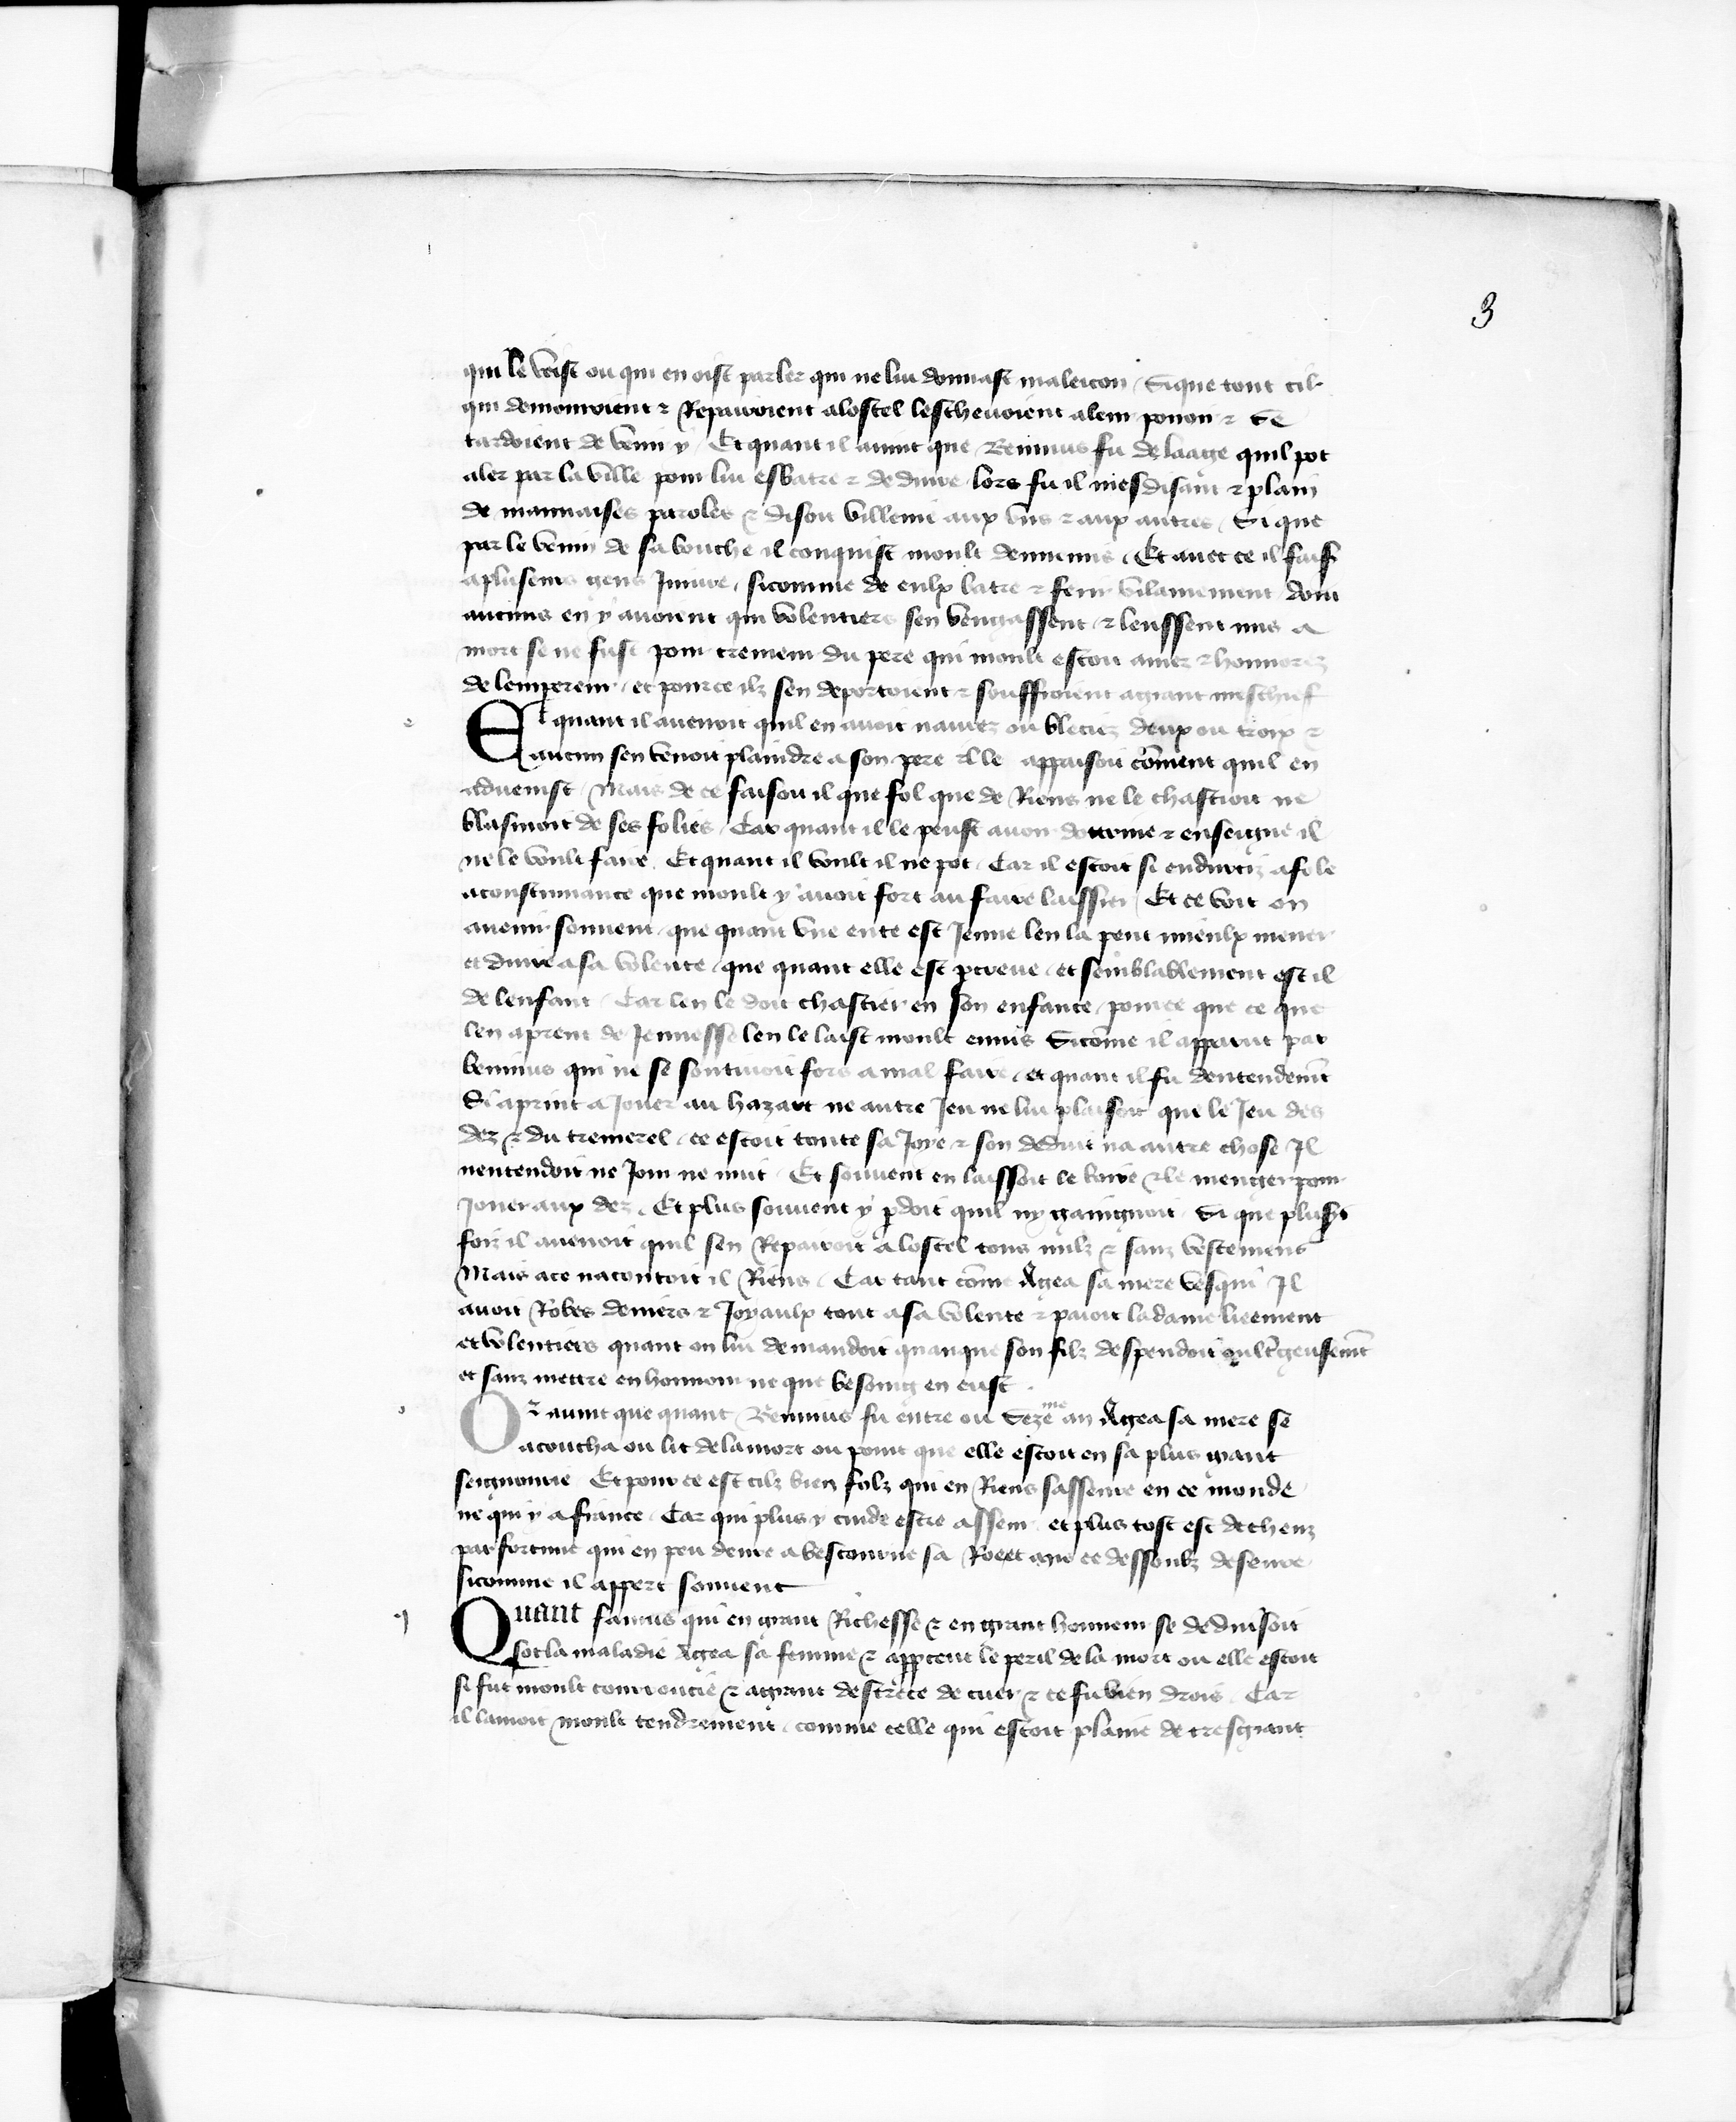 3
qui le veist ou qui en oist parler qui ne lui donnast maleicon / Sique tout cil
qui demouroient ⁊ Repairoient a lostel leschevoient a leur pouoir ⁊ se
tardoient de venir y / Et quant il auint que Berinus fu de laage quil pot
aler par la ville pour lui esbatre ⁊ deduire lors fu il mesdisant ⁊ plain
de mauuaises paroles ⁊ disoit villenie aux vns ⁊ aux autres / Si que
par le venin de sa bouche il conquist moult dennemis / Et auec ce il faisoit
a plusieurs gens Iniure / sicomme de eulx batre ⁊ ferir vilainement / dont
aucuns en y auoient qui volentiers sen vengassent / ⁊ leussent mis a
mort se ne fust pour cremeur du pere qui moult estoit amez ⁊ honnorez
de lempereur / et pource ilz sen deportoient ⁊ souffroient a grant meschief
Et quant il auenoit quil en auoit naurez ou bleciez deux ou trois ⁊
aucun sen venoit plaindre a son pere Il le appaisoit cõment quil en
aduenist / Mais de ce faisoit il que fol que de Riens ne le chastioit ne
blasmoit de ses folies / Car quant il le peust auoir doctrine ⁊ enseigne il
ne le voult faire / Et quant il voult il ne pot / Car il estoit si endurciz a fole
acoustumance que moult y auoit fort au faire laissier / Et ce voit on
auenir souuent / que quant vne ente est Ieune len la peut mieulx mener
et duire a sa volente / que quant elle est p̃creue / et semblablement est il
de lenfant / Car len le doit chastier en son enfance / pource que ce que
len aprent de Ieunesse len le laist moult enuis Sicõme il apparut par
berinus qui ne se soutiuoit fors a mal faire / et quant il fu dentendemẽt
Si aprint a Iouer au hazart ne autre Ieu ne lui plaisoit que le Ieu des
dez ⁊ du tremerel / ce estoit toute sa Ioye ⁊ son deduit na autre chose Il
nentendoit ne Iour ne nuit / Et souuent en laissoit le boire ⁊ le menger pour
Iouer aux dez / Et plus souuent y p̱doit quil ny gaaignoit / Si que plus̃s
foiz il auenoit quil sen Repairoit a lostel tous nulz ⁊ sanz vestemens
Mais a ce nacontoit il Riens / Car tant cõme Agea sa mere vesqui Il
auoit Robes deniers ⁊ Joyaulx tout a sa volente ⁊ paioit la dame lieement
et volentiers quant on lui demandoit quanque son filz despendoit oult̃geusemẽt
et sanz mettre en honnour ne que besoing en eust .
Or auint que quant Berinus fu entre ou Seze me an Agea sa mere se
acoucha ou lit de la mort ou point que elle estoit en sa plus grant
seignourie / Et pour ce est cilz bien folz qui en Riens sasseure en ce monde
ne qui y a fiance / Car qui plus y cuide estre asseur / et plus tost est decheuz
par fortune qui en peu deure a bestourne sa Roeet que ce dessoubz deseure
sicomme il appert souuent
Quant fanus qui en grant Richesse ⁊ en grant honneur se deduisoit
sot la maladie Agea sa femme ⁊ appceut le peril de la mort ou elle estoit
si fut moult courroucie ⁊ a grant destrece de cuer ⁊ ce fu bien drois / Car
il lamoit moult tendrement / comme celle qui estoit plaine de tresgrant